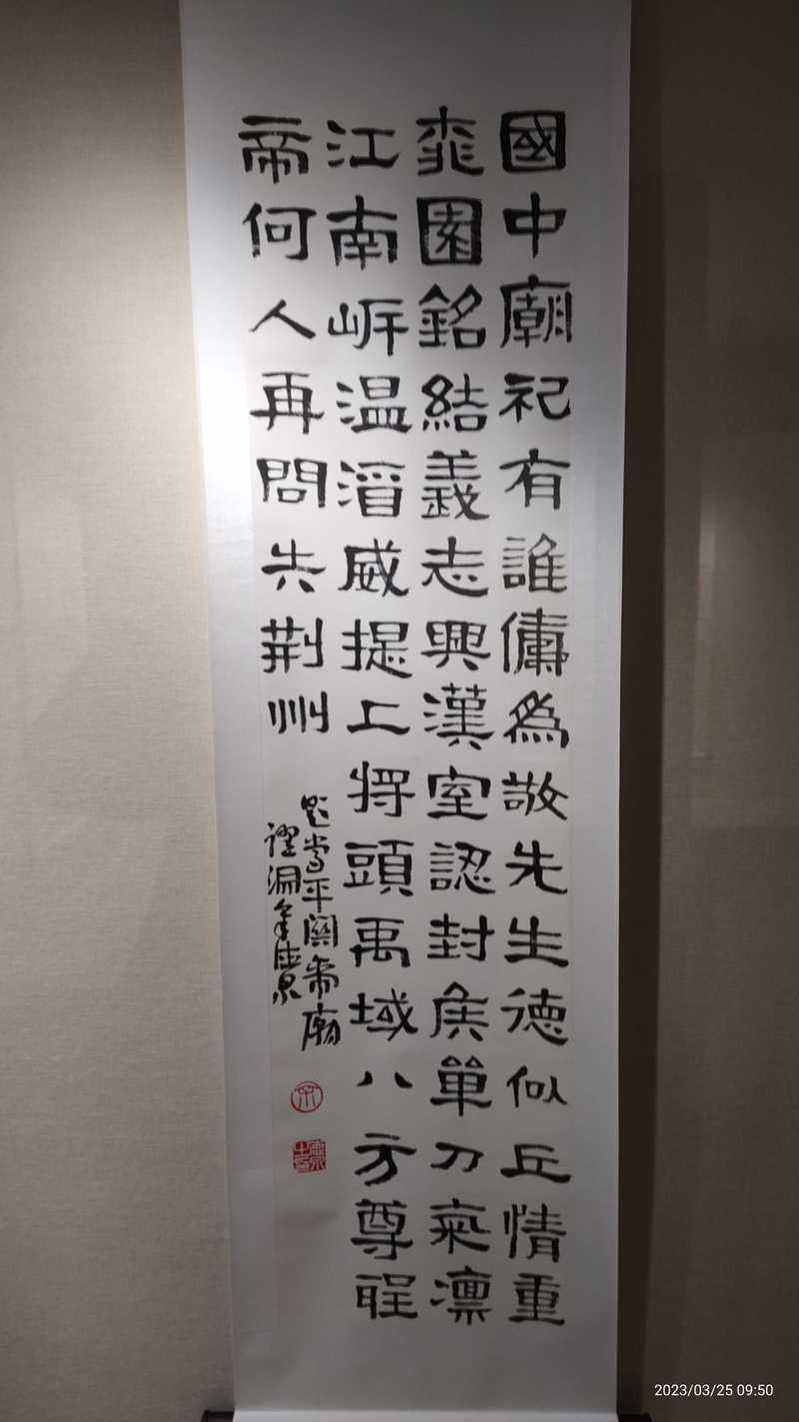 國中廟祀有誰傭為敬先生德似丘情重
桃園銘結義志興漢室認封侯單刀氣凜
江南岸温酒威提上將頭禹域八方尊聖
帝何人再問失荊州
題當平關帝廟
2023/03/25 09:50